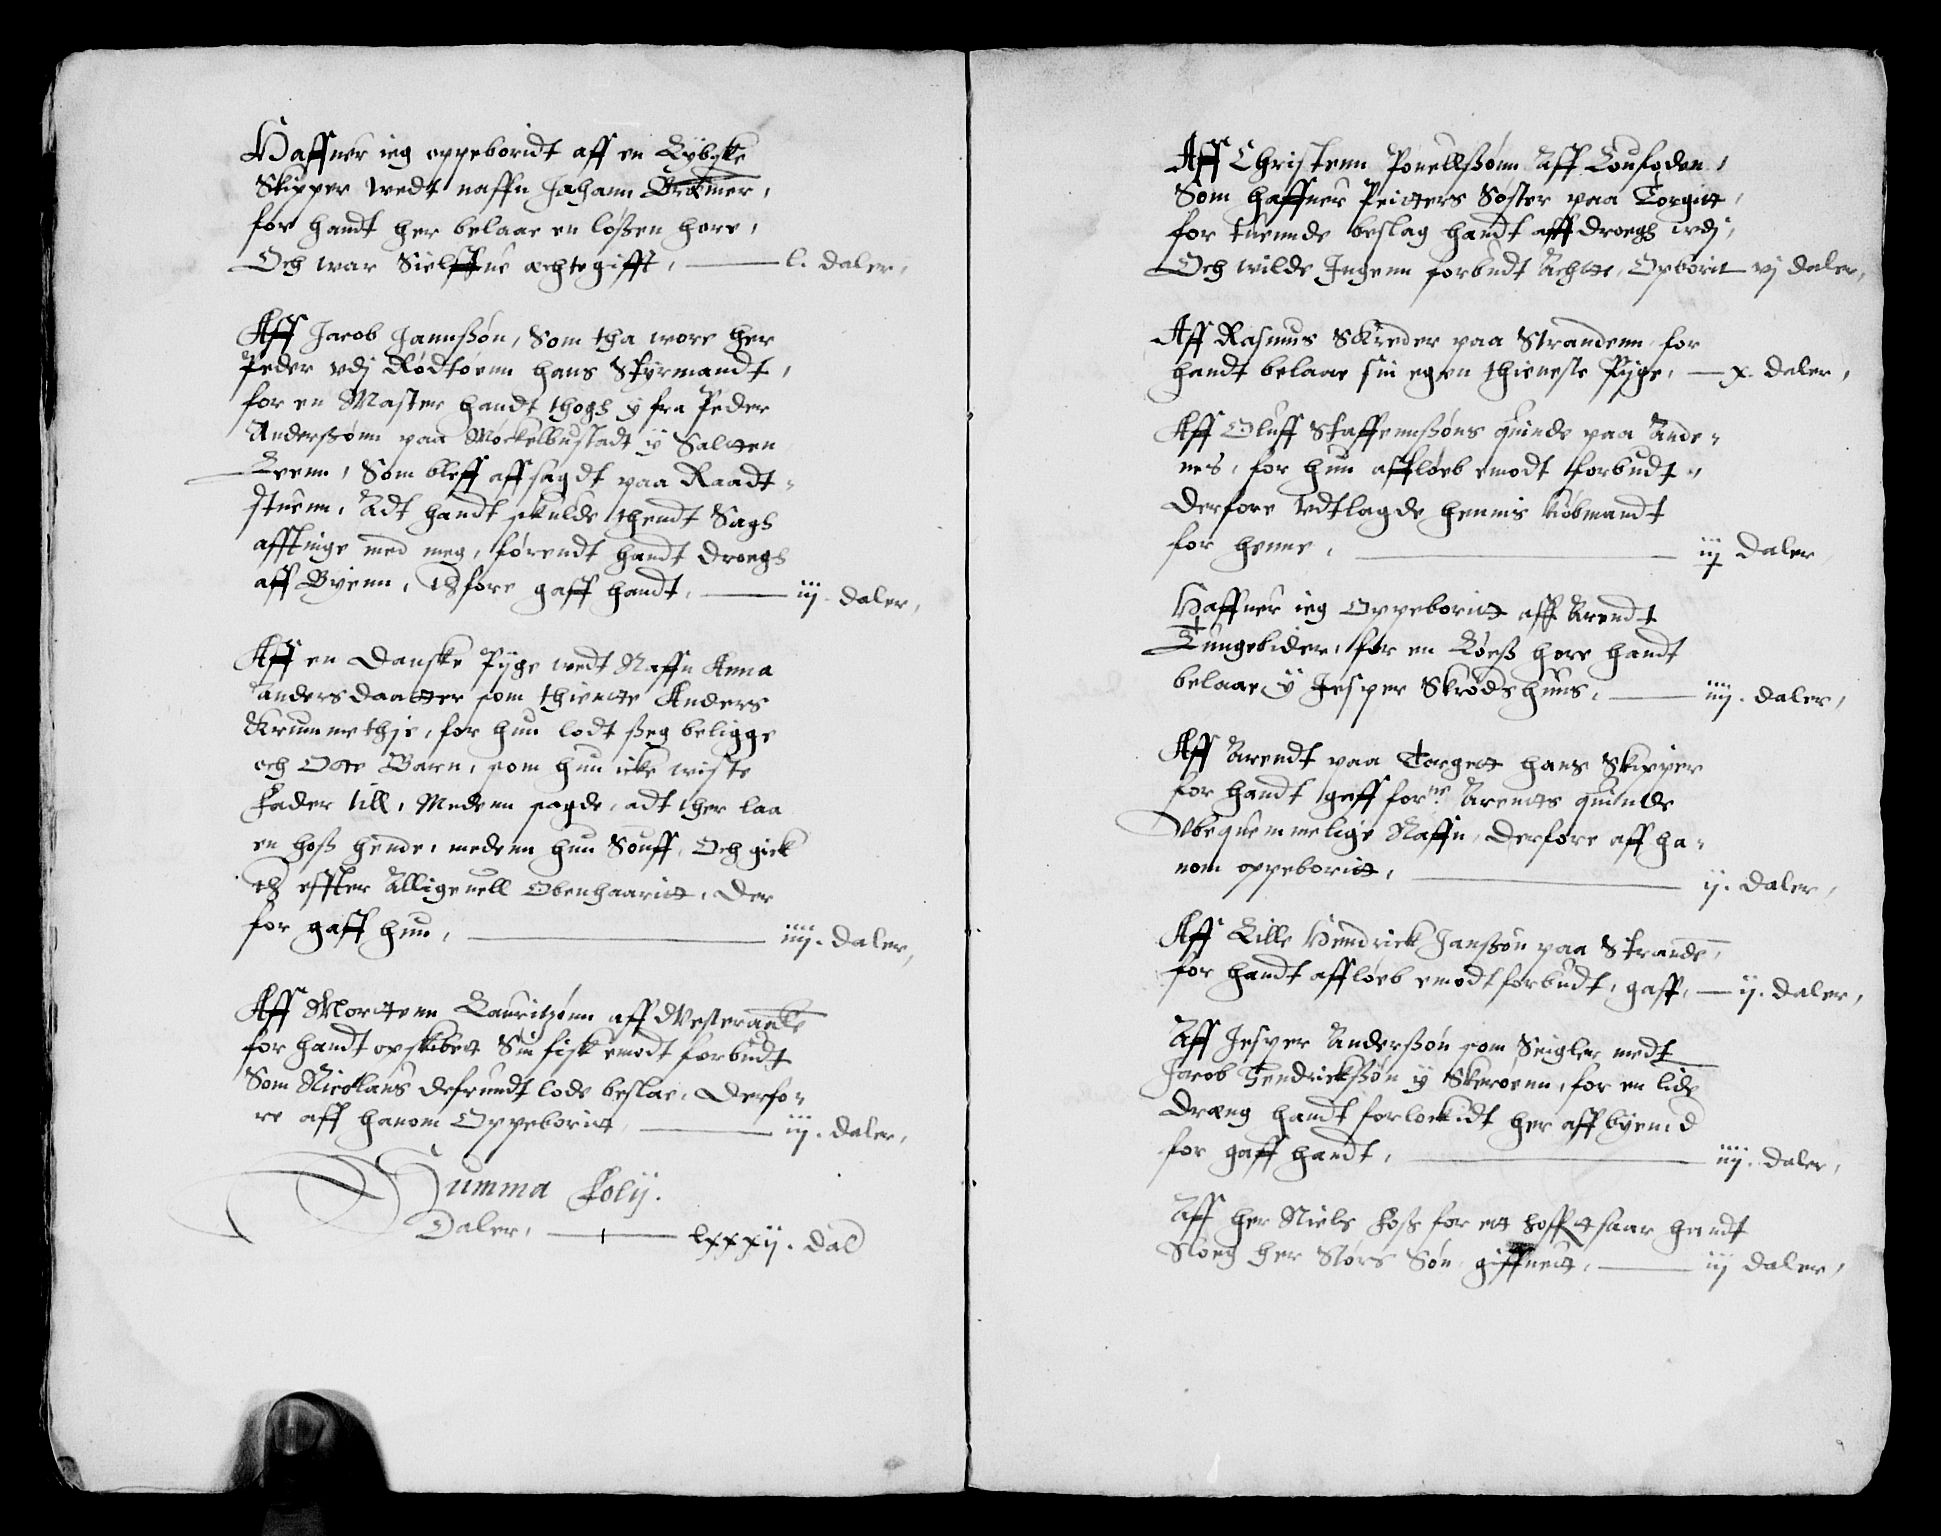 Haffuer ieg oppeboridt aff en Lybske
Skipper wedt naffn Johann Bræmer,
for handt her belaae en løßen hore,
Och war Sielffue echtegifft, l. daler,
Aff Jacob Jannßøn, Som tha wore her
Peder vdj Rødtøenn hans Styrmandt,
for en Master handt thogh y fra Peder
Anderßønn paa Mockelbustadt y Saltten
Leenn, Som bleff aff sagdt paa Raadt-
stuenn, Adt handt skulde thendt Sagh
afftinge med meg, førendt handt drogh
aff Byenn, Dfore gaff handt, iij. daler,
Aff en Danske Pyge wedt Naffn Anna
Andersdaatter som thientte Anders
Krummethje, for hun lodt ßeg beligge
och Otte Barn, som hun icke wiste
Fader till, Medenn sagde, adt ther laa
en hoß hende, medenn hun Souff, Och gick
th effter Alligeuell Obenhaaritt, Der
for gaff hun, iiij. daler,
Aff Morttenn Lauritzønn aff Vesteraalle
for handt opskibett Sin fisk emodt forbudt
Som Nicolaus Defrundt lode beslae, Derfo-
re aff hanom Oppeboritt, iij. daler,
Summa Folij.
Daler, lxxxij. dal
Aff Christenn Pouellßønn Aff Loufoden,
Som haffuer Peitters Søster paa Torgitt,
for tuennde beslag handt aff drogh vdj,
Och wilde Ingenn forbudt Achtte, Opborit vj daler,
Aff Rasmus Skreder paa Strandenn for
handt belaae sin egen thieneste Pyge, x. daler,
Aff Oluff Staffennßøns quinde paa Ande-
nes, for hun affløeb emodt forbudt,
Derfore Vdtlagde hennis Kiøbmandt
for henne, iij daler
Haffuer ieg Oppeboritt aff Arendt
Tungebider, for en Løeß hore handt
belaae y Jesper Skrøds huus, iiij. daler,
Aff Arendt paa Torgett hans Skipper
for handt gaff forne Arentts quinde
Vbequemmelige Naffn, Derfore aff ha-
nom oppeboritt, ij. daler,
Aff Lille Hendrick Janßøn paa Strande,
for handt affløeb emodt forbudt, gaff, ij. daler,
Aff Jesper Anderßøn som Seigler medt
Jacob Hendrickßøn y Skerøenn, for en lide
Dræng handt forlockidt her aff byen, d
for gaff handt, iiij. daler,
Aff her Niels Foß for ett hoffuitsaar handt
Sloeg her Mors Søn giffuett, iij daler,